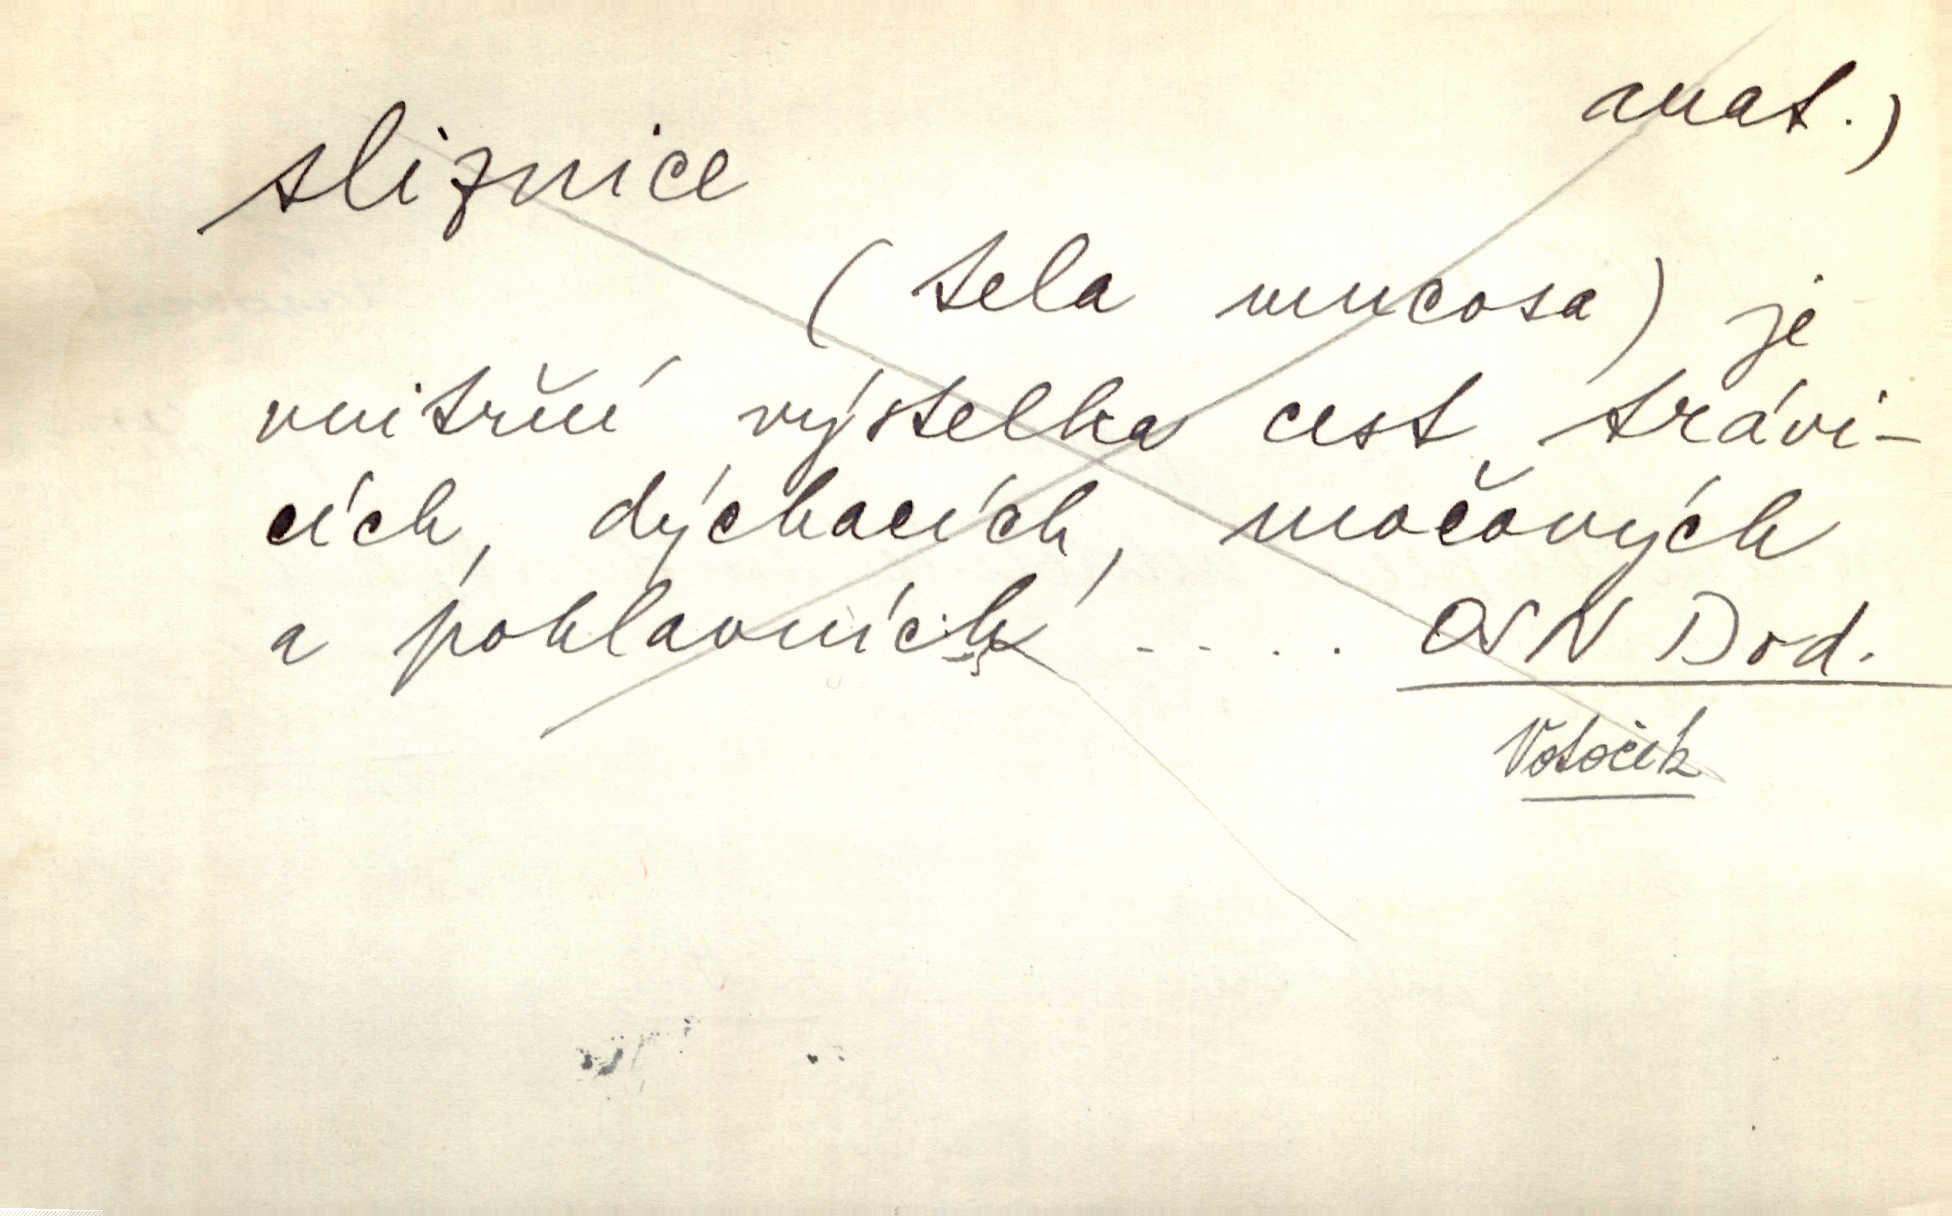 anat.)
sliznice
(tela mucosa) je
vnitřní výstelka cest trávi-
cích, dýchacích, močových
a pohlavních .... OSN Dod.
Votoček